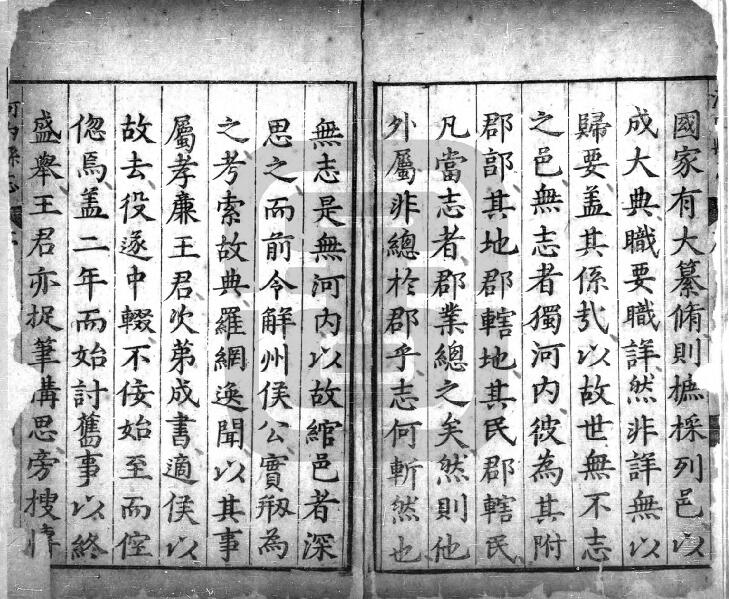 國家有大纂脩則摭採列邑以
成大典職要職詳然非詳無以
歸要盖其係㢤以故世無不志
之邑無志者獨河內彼為其附
郡郭其地郡轄地其民郡轄民
凡當志者郡業總之矣然則他
外屬非總於郡乎志何斬然也
無志是無河內以故綰邑者深
思之而前令解州侯公實剏為
之考索故典羅網逸聞以其事
屬孝廉王君次第成書適侯以
故去役遂中輟不佞始至而倥
偬焉盖二年而始討舊事以終
盛舉王君亦捉筆搆思旁搜
河內縣志